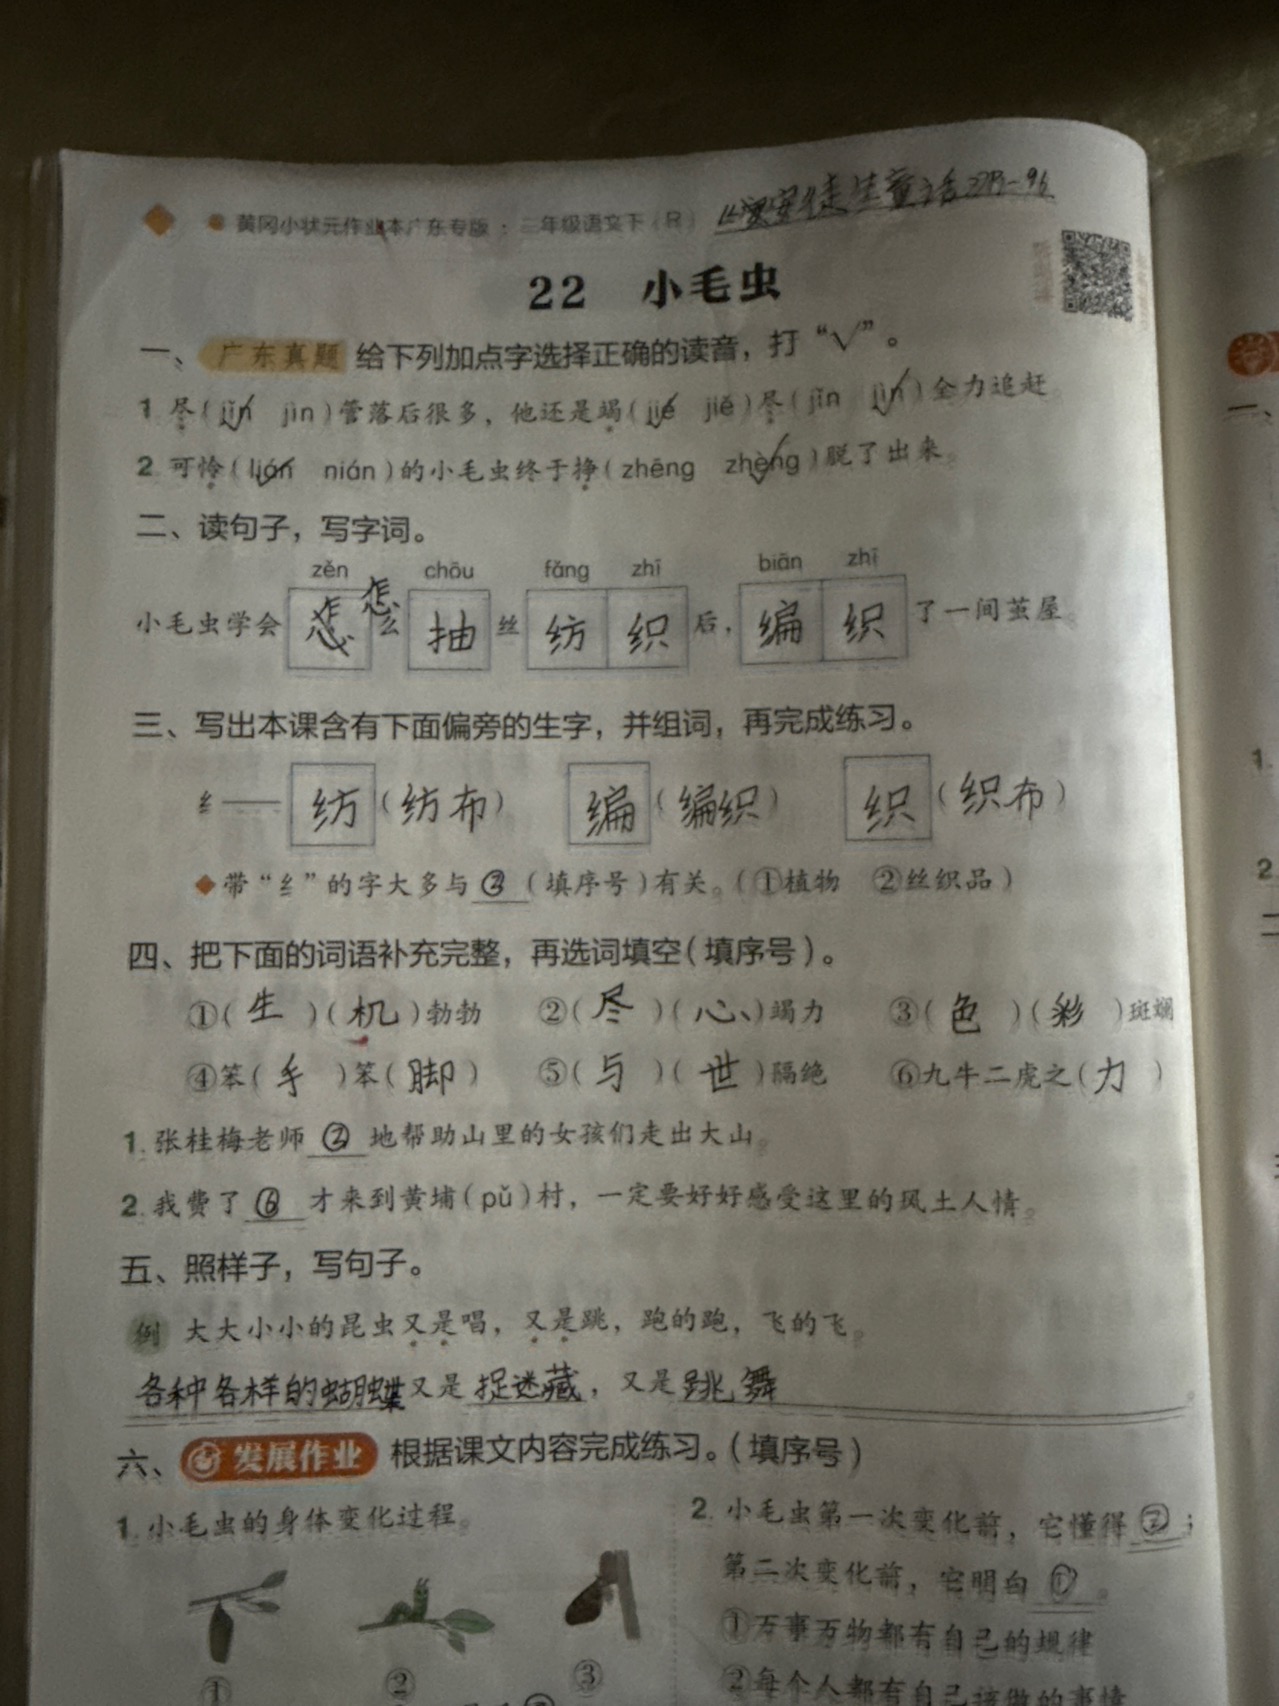 黄冈小状元作业本广东专版：二年级语文下（R）
22 小毛虫
一、广东真题 给下列加点字选择正确的读音，打“√”。
1. 尽（jǐn√ jìn）管落后很多，他还是竭（jié√ jiě）尽（jǐn jìn√）全力追赶。
2. 可怜（lián√ nián）的小毛虫终于挣（zhēng zhèng√）脱了出来。
二、读句子，写字词。
zěn chōu fǎng zhī biān zhī
小毛虫学会 怎 怎 么 抽 丝 纺 织 后，编 织 了一间茧屋。
三、写出本课含有下面偏旁的生字，并组词，再完成练习。
纟—— 纺（纺布） 编（编织） 织（织布）
◆带“纟”的字大多与②（填序号）有关。（①植物 ②丝织品）
四、把下面的词语补充完整，再选词填空（填序号）。
①（生）（机）勃勃 ②（尽）（心）竭力 ③（色）（彩）斑斓
④笨（手）笨（脚） ⑤（与）（世）隔绝 ⑥九牛二虎之（力）
1. 张桂梅老师②地帮助山里的女孩们走出大山。
2. 我费了⑥才来到黄埔（pǔ）村，一定要好好感受这里的风土人情。
五、照样子，写句子。
例 大大小小的昆虫又是唱，又是跳，跑的跑，飞的飞。
各种各样的蝴蝶又是捉迷藏，又是跳舞。
六、发展作业 根据课文内容完成练习。（填序号）
1. 小毛虫的身体变化过程。
① ② ③
2. 小毛虫第一次变化前，它懂得②；
第二次变化前，它明白①。
①万事万物都有自己的规律
②每个人都有自己该做的事情